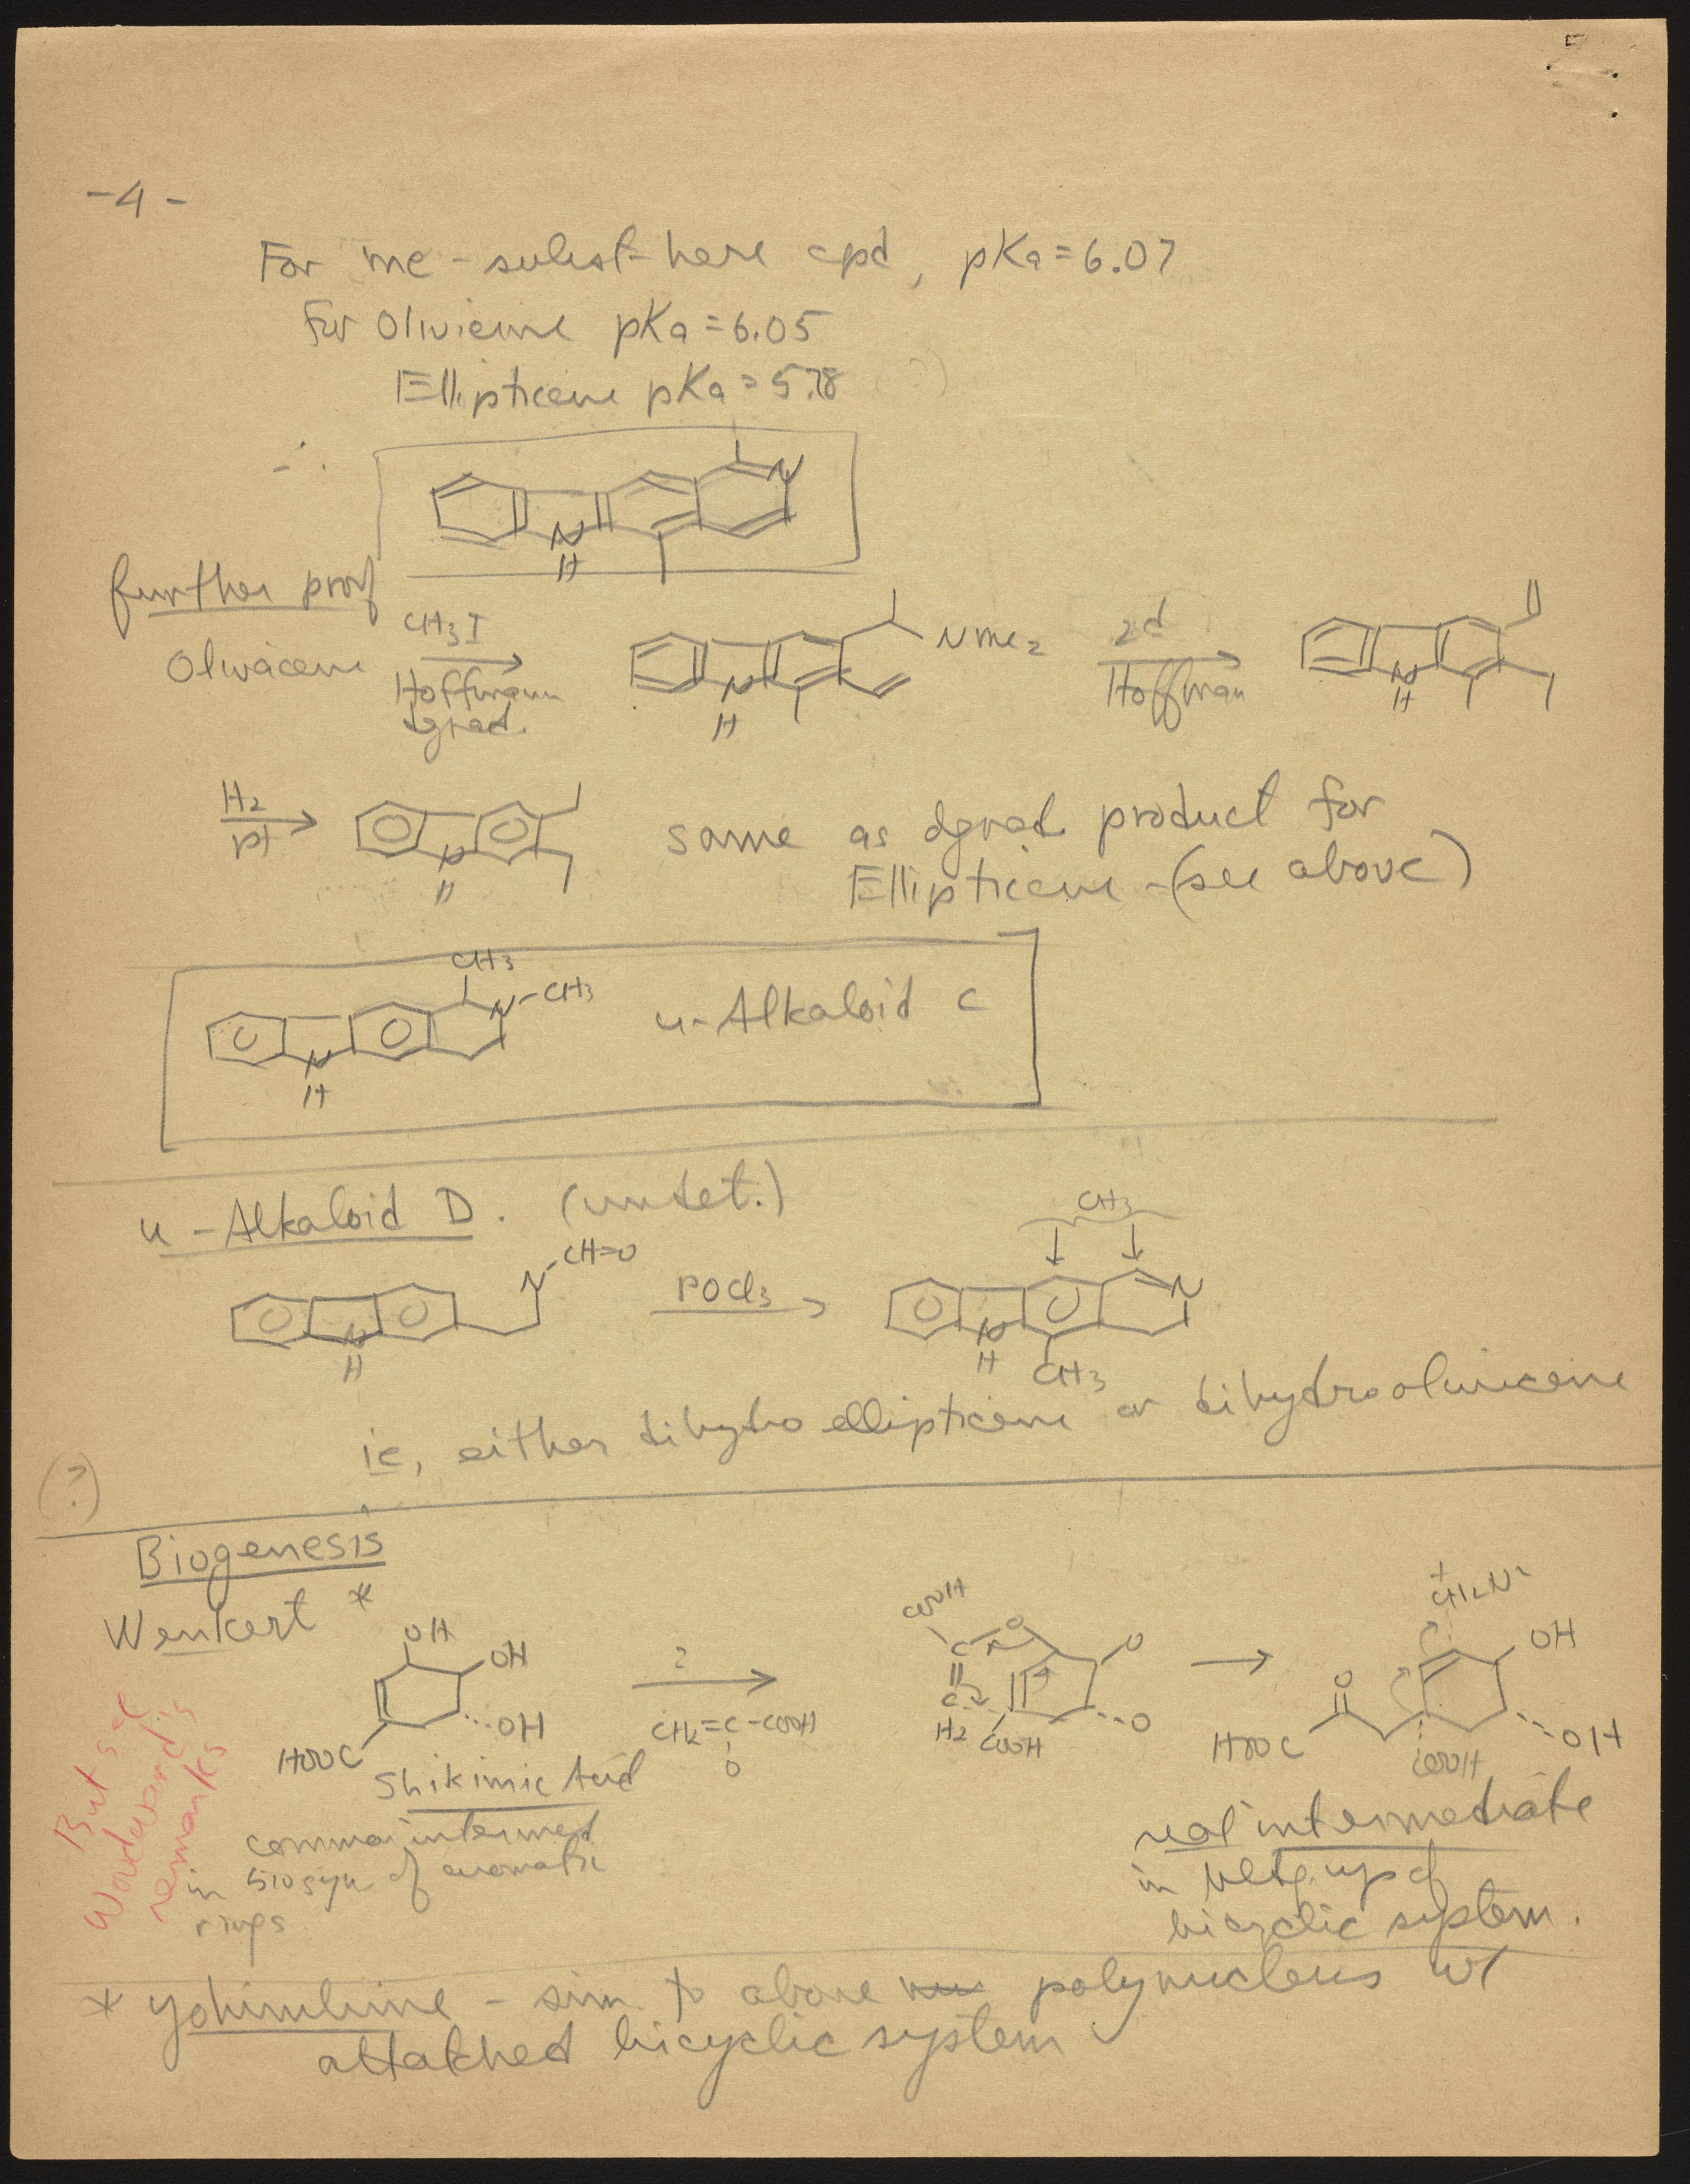 -4-
For me-subst here cpd, pKa=6.07
for Olivicine pKa=6.05
Ellipticene pKa=5.78
∴
N
N
H
further proof
Olivacene
CH3I
Hoffmann
dgrad.
NMe2
N
H
2d
Hoffman
N
H
H2
pt
N
H
same as dgrad product for
Ellipticene-(see above)
CH3
N-CH3
N
H
u-Alkaloid C
u-Alkaloid D. (undet.)
CH3
N-CH=O
N
H
POCl3
N
N
H
CH3
ie, either dihydroellipticene or dihydroolivicene
(?)
Biogenesis
Wenkert *
OH
OH
OH
HOOC
Shikimic Acid
common intermed
in biosyn of aromatic
rings.
?
CH2=C-COOH
O
COOH
C
O
O
C
H2
COOH
O
+
CH2N
OH
O
HOOC
COOH
OH
real intermediate
in
bicyclic system.
But see
Woodward's
remarks
* yohimbine - sim. to above polynucleus w/
attatched bicyclic system